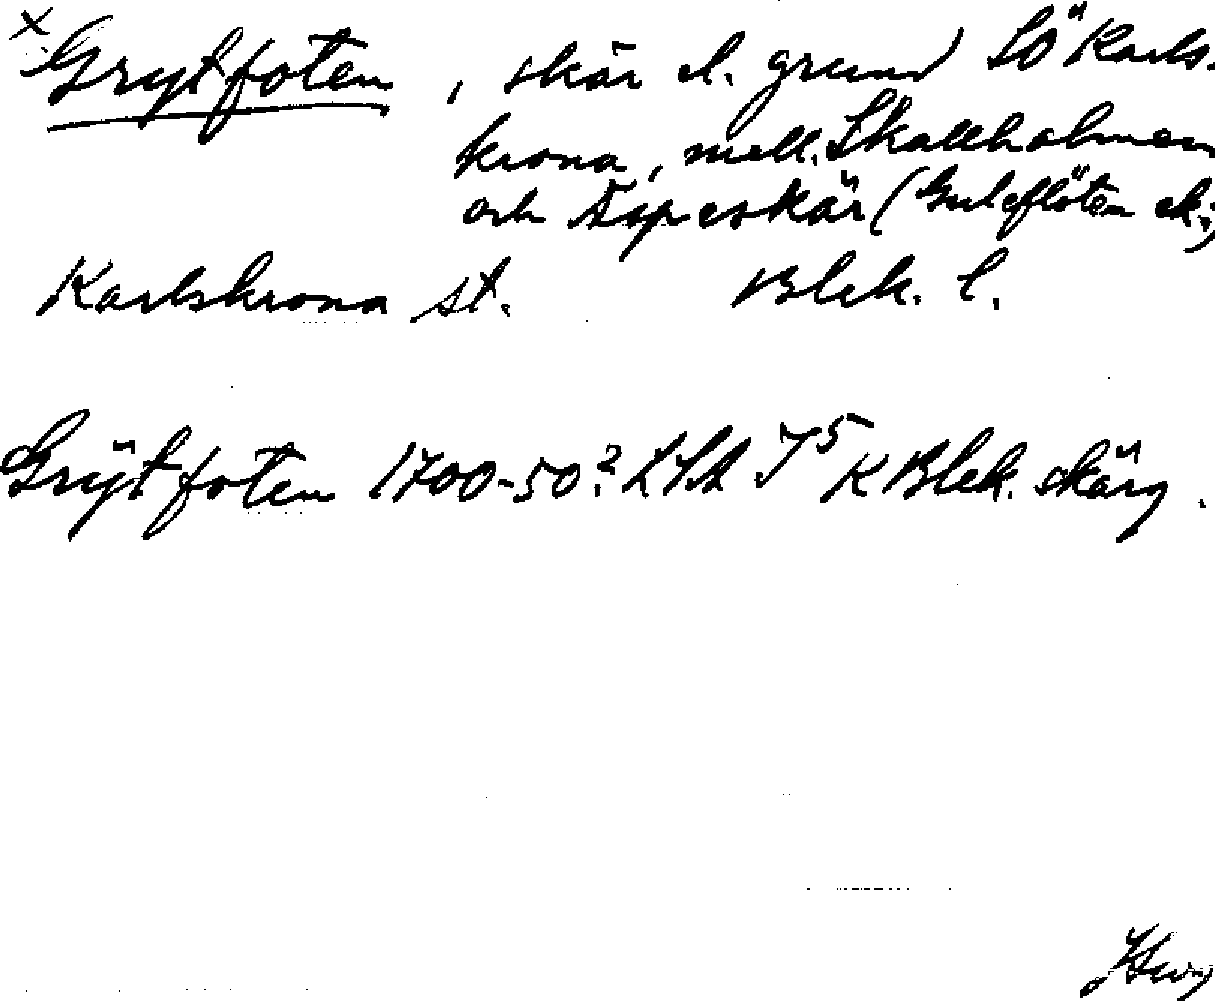 x Grytfoten, skär el. grund SÖ Karls-
krona, mell. Skallholmen
och Tipeskär (Guleflöten ek.)
Karlskrona st. Blek. l.
Grÿtfoten 1700-50? LSA I5 K Blek. skärg.